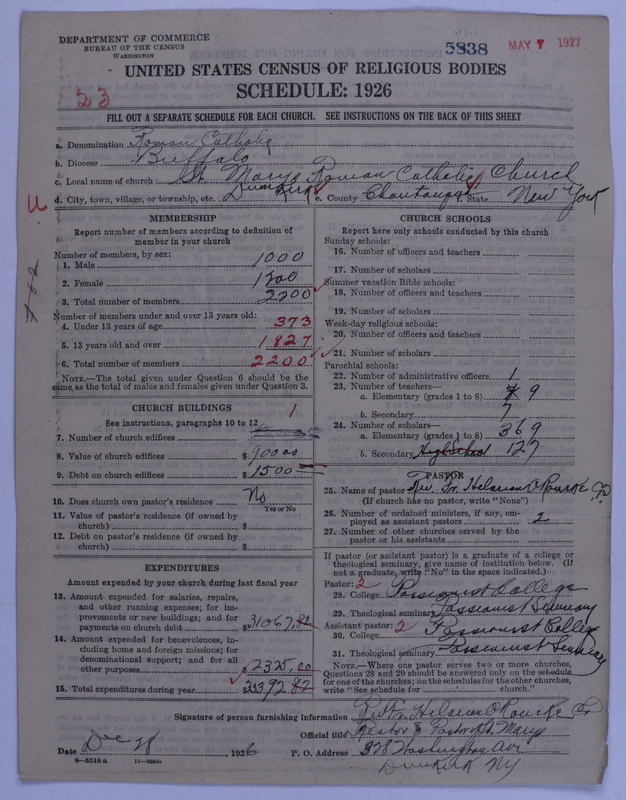 DEPARTMENT OF COMMERCE
BUREAU OF THE CENSUS
WASHINGTON
5838
MAY 7 1927
UNITED STATES CENSUS OF RELIGIOUS BODIES
SCHEDULE: 1926
23
FILL OUT A SEPARATE SCHEDULE FOR EACH CHURCH. SEE INSTRUCTIONS ON THE BACK OF THIS SHEET
a. Denomination Roman Catholic
b. Diocese Buffalo
c. Local name of church St. Marys Roman Catholic Church
d. City, town, village, or township, etc. Dunkirk e. County Chautauqua f. State New York
MEMBERSHIP
Report number of members according to definition of member in your church
Number of members, by sex:
1. Male 1000
2. Female 1200
3. Total number of members 2200
Number of members under and over 13 years old:
4. Under 13 years of age 373
5. 13 years old and over 1827
6. Total number of members 2200
NOTE.—The total given under Question 6 should be the same as the total of males and females given under Question 3.
CHURCH BUILDINGS
See instructions, paragraphs 10 to 12
1
7. Number of church edifices
8. Value of church edifices $
9. Debt on church edifices $ 1500
10. Does church own pastor's residence No
Yes or No
11. Value of pastor's residence (if owned by church) $
12. Debt on pastor's residence (if owned by church) $
EXPENDITURES
Amount expended by your church during last fiscal year
13. Amount expended for salaries, repairs, and other running expenses; for improvements or new buildings; and for payments on church debt $31067.82
14. Amount expended for benevolences, including home and foreign missions; for denominational support; and for all other purposes $2325.00
15. Total expenditures during year $
CHURCH SCHOOLS
Report here only schools conducted by this church
Sunday schools:
16. Number of officers and teachers
17. Number of scholars
Summer vacation Bible schools:
18. Number of officers and teachers
19. Number of scholars
Week-day religious schools:
20. Number of officers and teachers
21. Number of scholars
Parochial schools:
22. Number of administrative officers 1
23. Number of teachers—
a. Elementary (grades 1 to 8) 9
b. Secondary 7
24. Number of scholars—
a. Elementary (grades 1 to 8) 369
b. Secondary High School 127
PASTOR
25. Name of pastor Rev. Fr. Hilarion O'Rourke C.P.
(If church has no pastor, write "None")
26. Number of ordained ministers, if any, employed as assistant pastors 2
27. Number of other churches served by the pastor or his assistants
If pastor (or assistant pastor) is a graduate of a college or theological seminary, give name of institution below. (If not a graduate, write "No" in the space indicated.)
Pastor: 2
28. College Passionist College
29. Theological seminary Passionist Seminary
Assistant pastor: 2
30. College Passionist College
31. Theological seminary Passionist Seminary
NOTE.—Where one pastor serves two or more churches, Questions 28 and 29 should be answered only on the schedule for one of the churches; on the schedules for the other churches, write "See schedule for church."
Signature of person furnishing information Rev. Fr. Hilarion O'Rourke C.P.
Official title Rector & Pastor of St. Marys
Date Dec 28 1926 P. O. Address 328 Washington Ave.
8-5518a 11-9034c Dunkirk NY